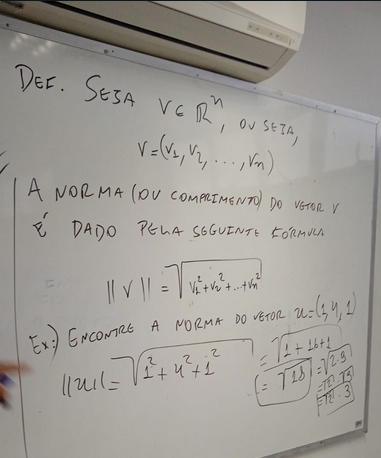 DEF. SEJA V ∈ ℝⁿ, OU SEJA,
V = (V₁, V₂, ..., Vₙ)
A NORMA (OU COMPRIMENTO) DO VETOR V
É DADO PELA SEGUINTE FÓRMULA
||V|| = √(V₁² + V₂² + ... + Vₙ²)
Ex:) ENCONTRE A NORMA DO VETOR u = (1, 4, 1)
||u|| = √(1² + 4² + 1²) = √(1 + 16 + 1)
= √18 = √(2·9)
= √2 · √9
= √2 · 3